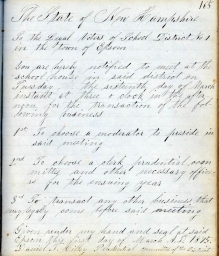 168
The State of New Hampshire
To the Legal Voters of School District No
in the Town of Epsom
You are hereby notified to meet at the
school house in said district on
Tuesday the seventh day of March
instant at three o'clock in the after
noon, for the transaction of the fol
lowing business
1st To choose a moderator to preside in
said meeting
2nd To choose a clerk, prudential com
mittee and other necessary office
rs for the ensuing year
3d To transact any other business that
may legally come before said meeting
Given under my hand and seal at said
Epsom this first day of March A.D.
Prudential